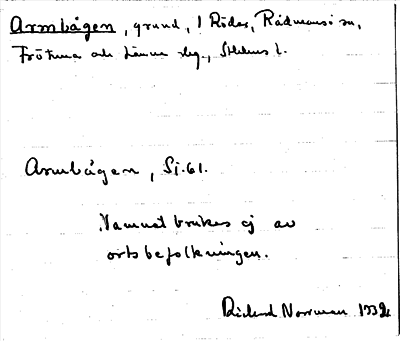 Armbågen, grund, l Röder, Rådmansö sn,
Frötuna och Länna skg., Sthlms l.
Armbågen, Sj. 61.
Namnet brukas ej av
ortsbefolkningen.
Rickard Norrman 1932